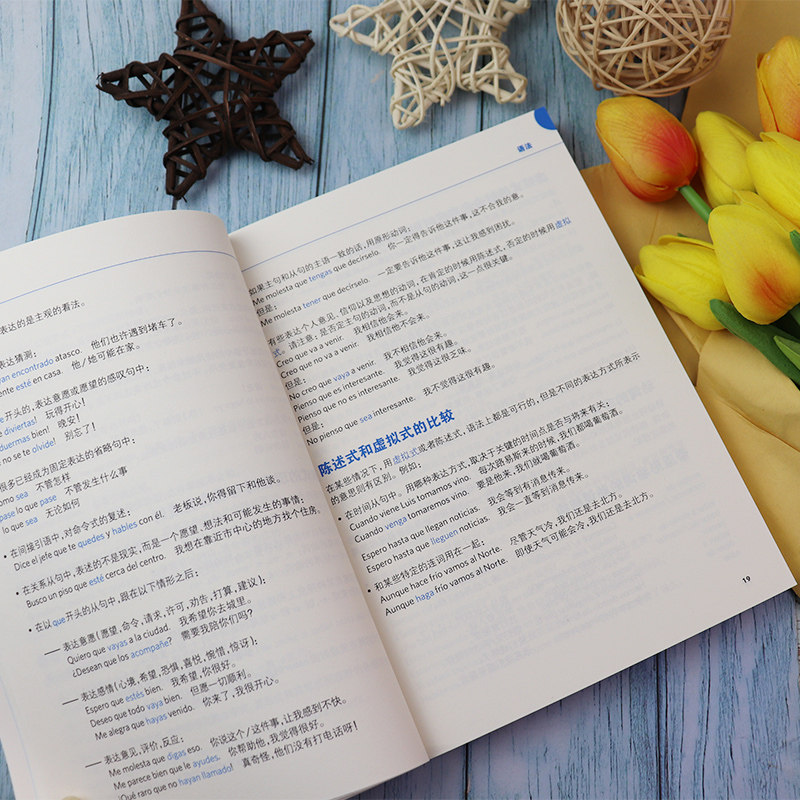 表达的是主观的看法。
表达猜测:
yan encontrado atasco. 他们也许遇到堵车了。
ente esté en casa. 他/她可能在家。
e开头的,表达意愿或愿望的感叹句中:
e diviertas! 玩得开心!
duermas bien! 晚安!
no se te olvide! 别忘了!
很多已经成为固定表达的省略句中:
omo sea 不管怎样
pase lo que pase 不管发生什么事
lo que sea 无论如何
• 在间接引语中,对命令式的复述:
Dice el jefe que te quedes y hables con él. 老板说,你得留下和他谈。
• 在关系从句中,表述的不是现实,而是一个愿望、想法和可能发生的事情:
Busco un piso que esté cerca del centro. 我想在靠近市中心的地方找个住房。
• 在以que开头的从句中,跟在以下情形之后:
— 表达意愿(愿望,命令,请求,许可,劝告,打算,建议):
Quiero que vayas a la ciudad. 我希望你去城里。
¿Desean que los acompañe? 需要我陪你们吗?
— 表达感情(心境,希望,恐惧,喜悦,惋惜,惊讶):
Espero que estés bien. 我希望,你很好。
Deseo que todo vaya bien. 但愿一切顺利。
Me alegra que hayas venido. 你来了,我很开心。
— 表达意见,评价,反应:
Me molesta que digas eso. 你说这个/这件事,让我感到不快。
Me parece bien que le ayudes. 你帮助他,我觉得很好。
¡Qué raro que no hayan llamado! 真奇怪,他们没有打电话呀!
语法
如果主句和从句的主语一致的话,用原形动词:
Me molesta que tengas que decirselo. 你一定得告诉他这件事,这不合我的意。
但是:
Me molesta tener que decirselo. 一定要告诉他这件事,这让我感到困扰。
有些表达个人意见、信仰以及思想的动词,在肯定的时候用陈述式,否定的时候用虚拟
式。请注意:是否定主句的动词,而不是从句的动词,这一点很关键。
Creo que va a venir. 我相信他会来。
Creo que no va a venir. 我相信他不会来。
但是:
No creo que vaya a venir. 我不相信他会来。
Pienso que es interesante. 我觉得这很有趣。
Pienso que no es interesante. 我觉得这很乏味。
但是:
No pienso que sea interesante. 我不觉得这很有趣。
陈述式和虚拟式的比较
在某些情况下,用虚拟式或者陈述式,语法上都是可行的,但是不同的表达方式所表示
的意思则有区别。例如:
• 在时间从句中。用哪种表达方式,取决于关键的时间点是否与将来有关:
Cuando viene Luis tomamos vino. 每次路易斯来的时候,我们都喝葡萄酒。
Cuando venga tomaremos vino. 要是他来,我们就喝葡萄酒。
Espero hasta que llegan noticias. 我会等到有消息传来。
Espero hasta que lleguen noticias. 我会一直等到消息传来。
• 和某些特定的连词用在一起:
Aunque hace frío vamos al Norte. 尽管天气冷,我们还是去北方。
Aunque haga frío vamos al Norte. 即使天气可能会冷,我们还是去北方。
19